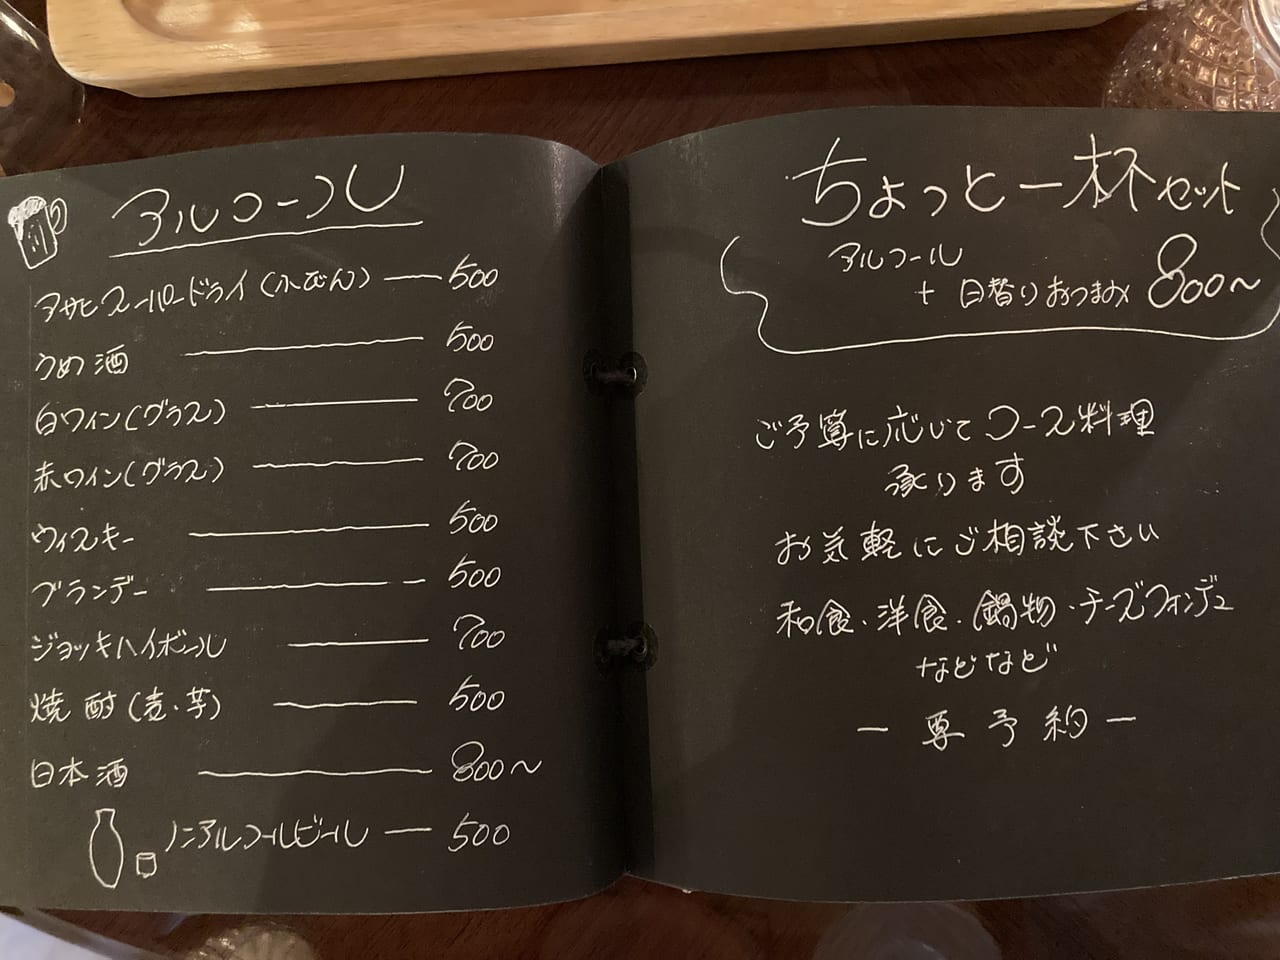 アルコール
アサヒスーパードライ(小びん) — 500
うめ酒 — 500
白ワイン(グラス) — 700
赤ワイン(グラス) — 700
ウィスキー — 500
ブランデー — 500
ジョッキハイボール — 700
焼酎(麦・芋) — 500
日本酒 — 800〜
ノンアルコールビール — 500
ちょっと一杯セット
アルコール
+ 日替りおつまみ 800〜
ご予算に応じてコース料理
承ります
お気軽にご相談下さい
和食・洋食・鍋物・チーズフォンデュ
などなど
— 要予約 —